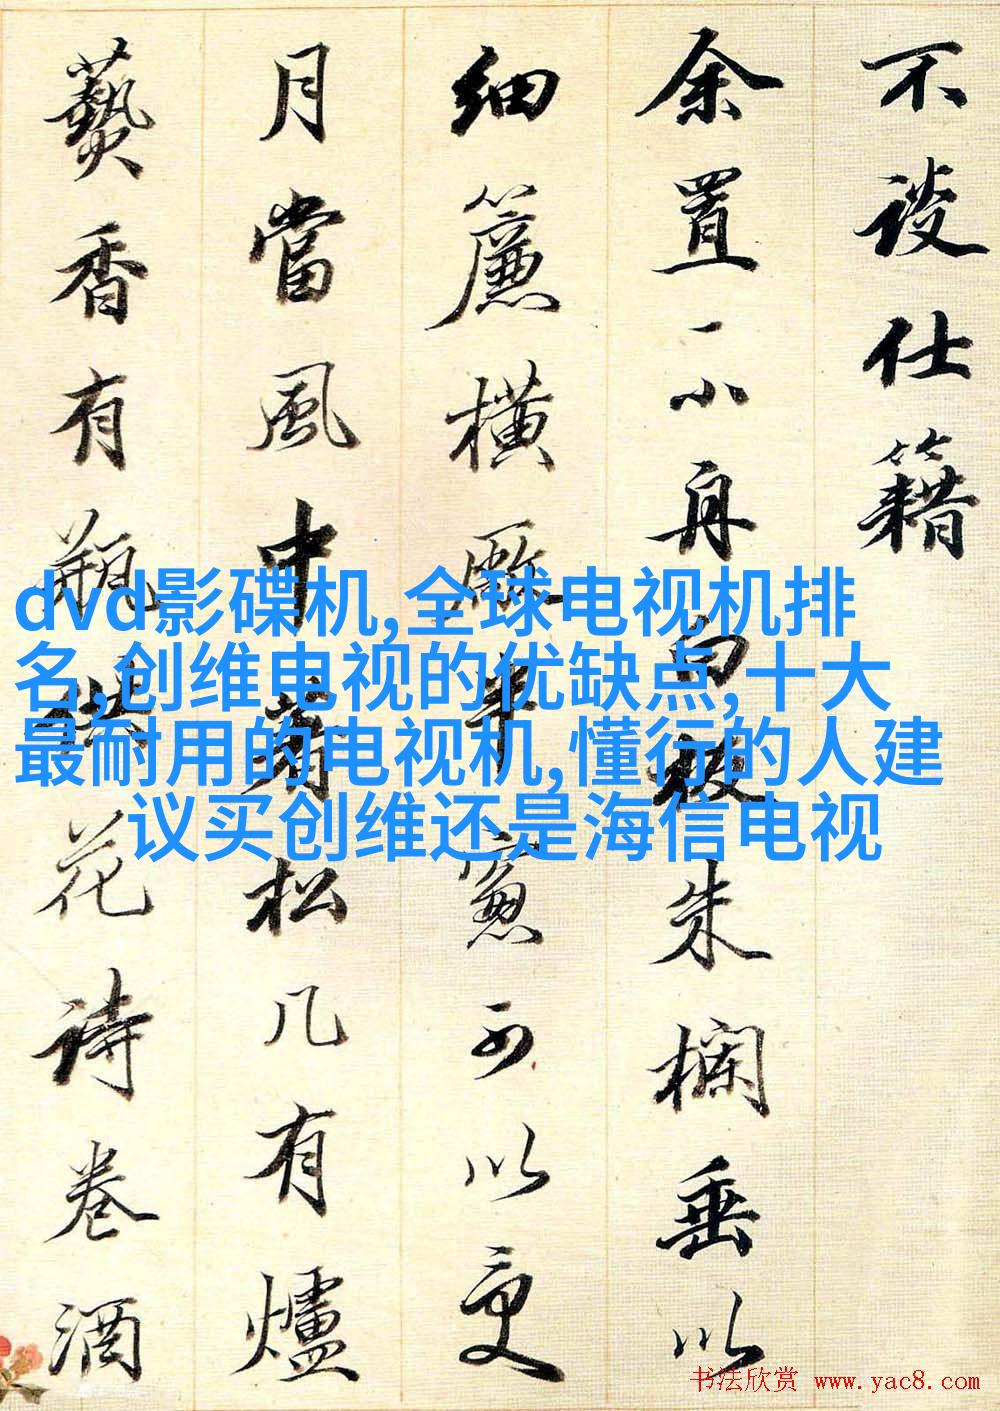 不談仕籍
余置一小舟白板朱欄垂以
細簾橫半窻可以更
月當風中着松几有爐
爇香有瓶供花詩卷酒
dvd影碟机,全球电视机排
名,创维电视的优缺点,十大
最耐用的电视机,懂行的人建
议买创维还是海信电视
书法欣赏 www.yac8.com